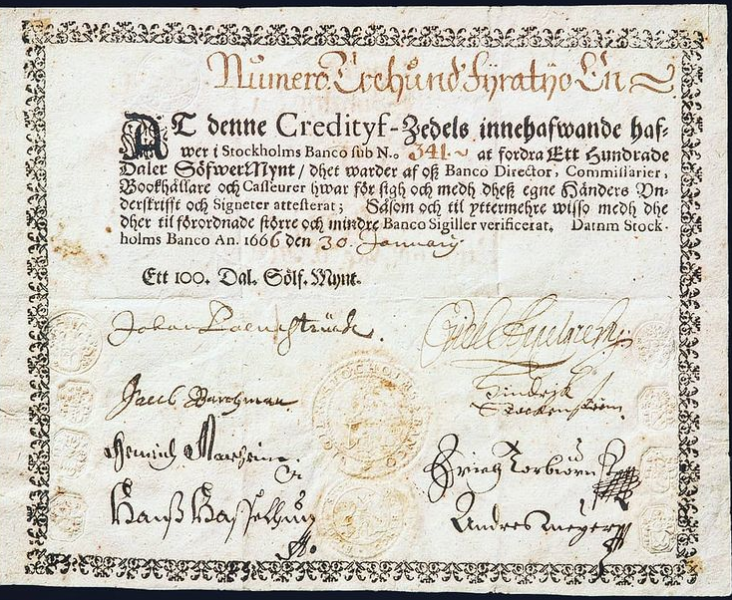 Numero Trehund Fyratyo En
AT denne Credityf-Zedels innehafwande haf-
wer i Stockholms Banco sub N.o 341 at fordra Ett Hundrade
Daler SöfwerMynt / dhet warder af oß Banco Director, Commissarier,
Bookhållare och Casseurer hwar för sigh och medh dheß egne Händers Vn-
derskrifft och Signeter attesterat; Såsom och til yttermehre wisso medh dhe
dher til förordnade större och mindre Banco Sigiller verificerat. Datnm Stock-
holms Banco An. 1666 den 30. January
Ett 100. Dal. Sölf. Mynt.
Johan
Jacob
Hindrich
Stockenström.
Hanß
Andres Meyer